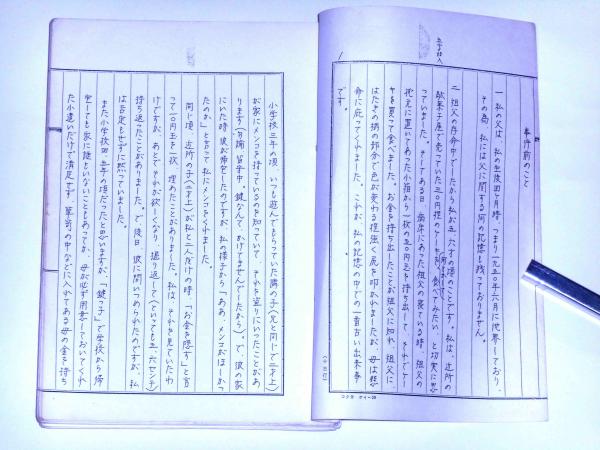 五字加入
事件前のこと
一 私の父は、私の生後四ヶ月時、つまり一九五〇年六月に他界しており、
その為、私には父に関する何の記憶も残っておりません。
二 祖父の存命中でしたから私が五、六才の頃のことです。私は、近所の
駄菓子屋で売っていた三〇円程のケーキを食べてみたい、と切実に思
っていました。そしてある日、病床にあった祖父の寝ている時、祖父の
枕元に置いてあった小箱から一枚の五〇円玉を持ち出して、それでケー
キを買って食べました。お金を持ち出したことが祖父に知れ、祖父に、
はたきの柄の部分で色が変わる程強く尻を叩かれましたが、母は懸
命に庇ってくれました。これが、私の記憶の中での一番古い出来事
です。
コクヨ ケイ-20
小学校三年の頃、いつも遊んでもらっていた隣の子(兄と同じで二才上)
が家にメンコを持っているのを知っていて、それを盗りにいったことがあ
ります(勿論 留守中。鍵なんてかけてませんでしたから)。で、彼の家
にいた時、彼が帰宅したのですが、私の様子から「ああ、メンコがほしかっ
たのか」と言って私にメンコをくれました。
同じ頃、近所の子(二才上)が私と二人だけの時、「お金を隠す」と言
って一〇円玉を一枚、埋めたことがありました。私は、それを見ていたわ
けですが、あとでそれが欲しくなり、掘り返して(といっても五、六センチ)
持ち返ったことがありました。で、後日、彼に問いつめられたのですが、私
は否定もせずに黙っていました。
また小学校四、五年の頃だったと思いますが、「鍵っ子」で学校から帰
宅しても家に誰もいないこともあってか、母が必ず用意しておいてくれ
た小遣いだけで満足せず、箪笥の中などに入れてある母の金を持ち